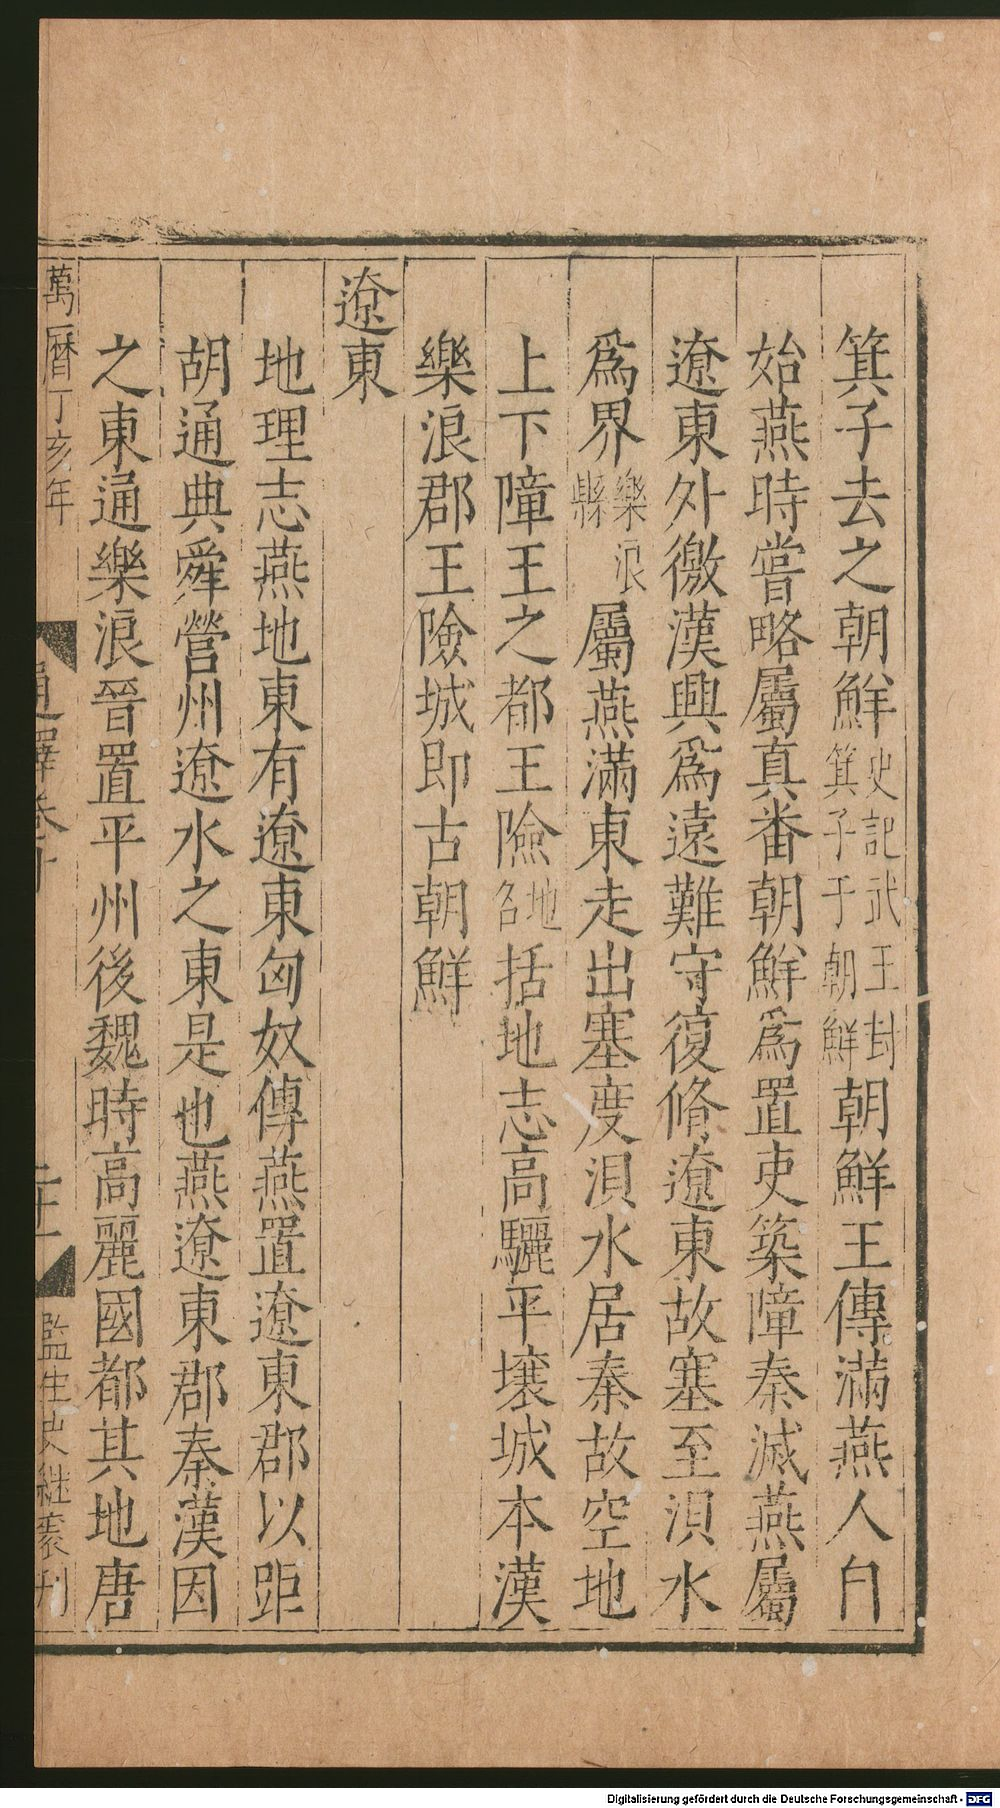 箕子去之朝鮮史記武王封箕子于朝鮮朝鮮王傳滿燕人自
始燕時嘗略屬真番朝鮮爲置吏築障秦滅燕屬
遼東外徼漢興爲遠難守復脩遼東故塞至浿水
爲界樂浪縣屬燕滿東走出塞度浿水居秦故空地
上下障王之都王險地名括地志高驪平壤城本漢
樂浪郡王險城即古朝鮮
遼東
地理志燕地東有遼東匈奴傳燕置遼東郡以距
胡通典舜營州遼水之東是也燕遼東郡秦漢因
之東通樂浪晉置平州後魏時高麗國都其地唐
萬曆丁亥年
通釋卷十
二十一
監生史繼裘刊
Digitalisierung gefördert durch die Deutsche Forschungsgemeinschaft - DFG